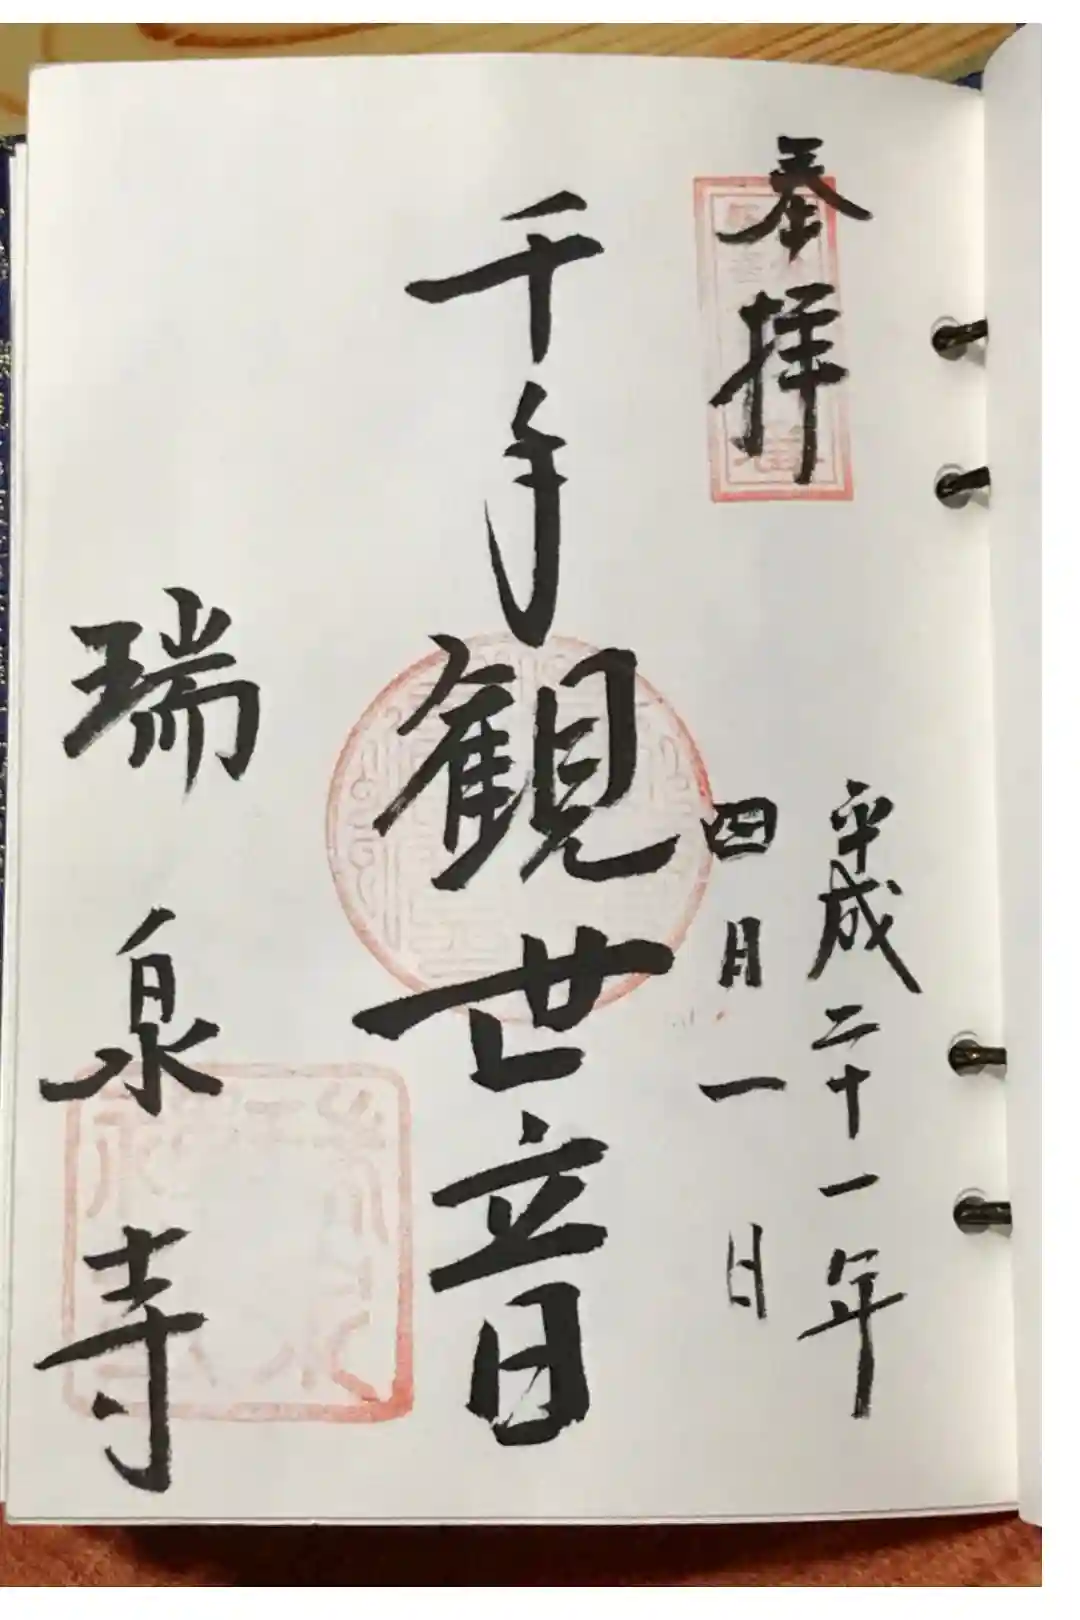 奉拝
平成二十一年
四月一日
千手観世音
瑞泉寺